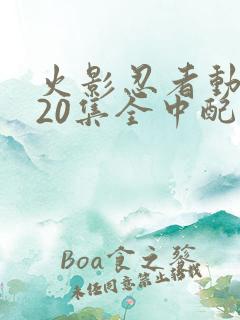 火影忍者動
20集全中配
Boa食之發
未经同意禁止搭伐